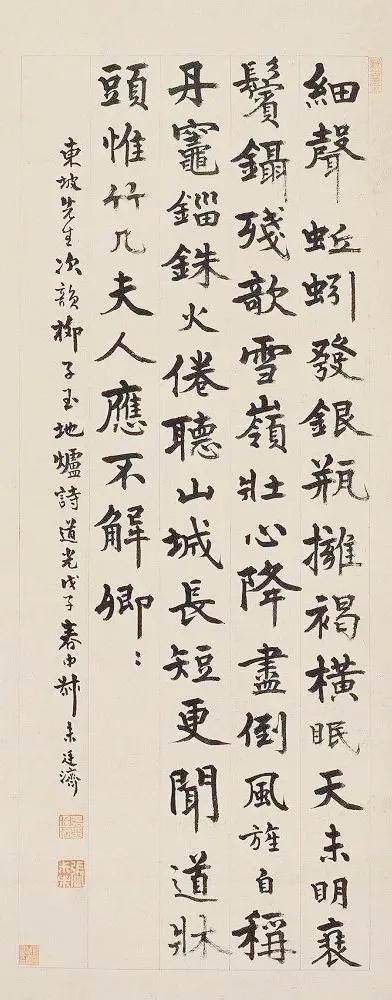 細聲蚯蚓發銀瓶擁褐橫眠天未明衰
鬢鑷殘欹雪嶺壯心降盡倒風旌自稱
丹竈錙銖火倦聽山城長短更聞道牀
頭惟竹几夫人應不解卿:
東坡先生次韻柳子玉地爐詩道光戊子春中叔未廷濟